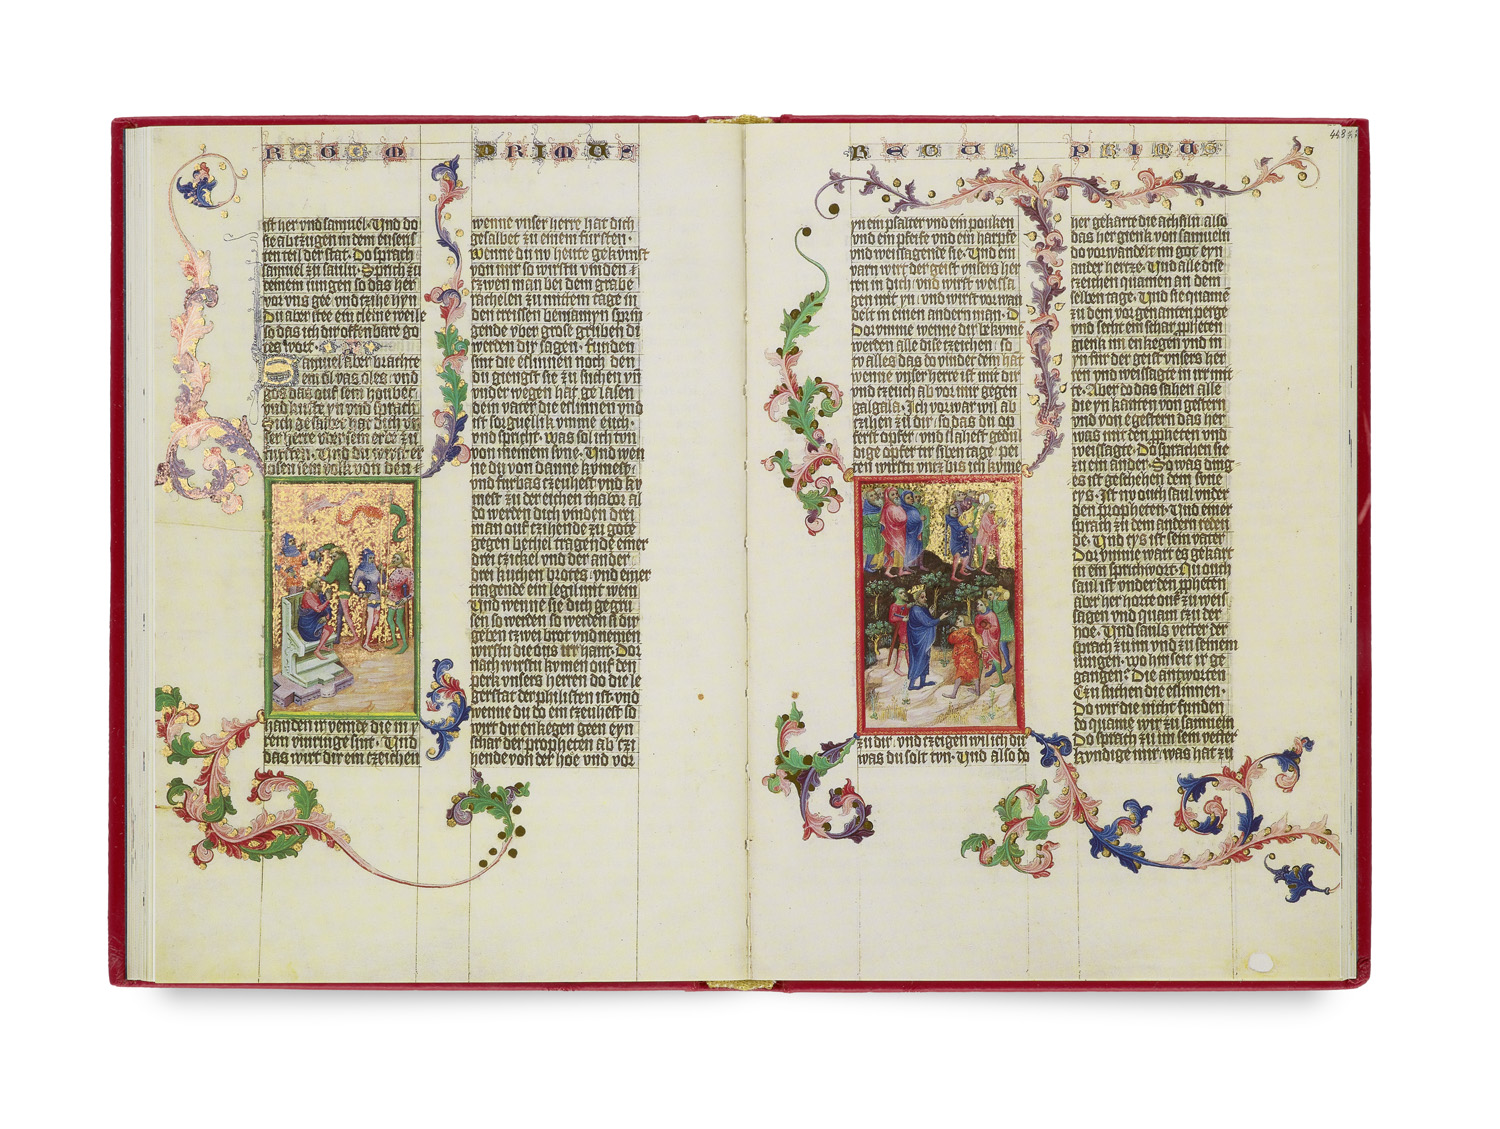 REGUM PRIMUS
ist her vnd samuel· Vnd do
sie abtzugen in dem eusers
ten teil der stat· Do sprach
samuel zu saul· Sprich zu
deinem iungen so das her
vor vns gee vnd czihe hyn
Du aber stee ein cleine weile
so das ich dir offenbare go
tes wort·
Samuel aber brachte
ein öl vas öles vnd
gos das ouf sein houbet
vnd kuste yn vnd sprach
Sich gesalbet hat dich vn
ser herre vber sein erbe zu
fursten· Vnd du wirst er
losen sein volk von den
handen ir veinde die in i
rem vmringe sint· Vnd
das wirt dir ein czeichen
wenne vnser herre hat dich
gesalbet zu einem fursten·
Wenne du nv heute gekvmst
von mir so wirstu vinden
czwen man bei dem grabe
rachelen zu mittem tage in
den creissen beniamyn sprin
gende vber grose gruben di
werden dir sagen· funden
sint die eslinnen noch den
du giengst sie zu suchen vn
vnder wegen hat ge lasen
dein vater die eslinnen vnd
ist sorguelik vmme euch·
vnd spricht· was sol ich tvn
von meinem svne· Vnd wen
ne du von danne kvmest·
vnd furbas czeuhest vnd kv
mest zu der eichen thabor al
do werden dich vinden drei
man ouf czihende zu gote
gegen bethel tragende einer
drei czickel vnd der ander
drei kuchen brotes· vnd einer
tragende ein legil mit wein
Vnd wenne sie dich gegru
sen so werden so werden si dir
geben czwei brot vnd nemen
wirstu die ons irr hant· Dor
nach wirstu kvmen ouf den
perk vnsers herren do die le
gerstat der philisten ist· vnd
wenne du do ein czeuhest so
wirt dir enkegen geen eyn
schar der propheten ab czi
hende von der hoe vnd vor
REGUM PRIMUS
yn ein psalter vnd ein pouken
vnd ein pfeife vnd ein harpfe
vnd weissagende sie· Vnd ein
varn wirt der geist vnsers her
ren in dich· vnd wirst weissa
gen mit yn· vnd wirst vorwan
delt in einen andern man· D
Dorvmme wenne dir bekvme
werden alle dise czeichen so
tv alles das do vindet dein hant
wenne vnser herre ist mit dir
vnd czeuch ab vor mir gegen
galgala· Ich vorwar wil ab
czihen zu dir so das du op
ferst opfer vnd slahest gedin
dige opfer tir siben tage· pei
ten wirstu vncz bis ich kvm
zu dir· vnd czeigen wil ich dir
was du solt tvn· Vnd also do
her gekarte die achseln also
das her gienk von samueln
do vorwandelt im got eyn
ander hertze· Vnd alle dise
czeichen quamen an dem
selben tage· Vnd sie quame
zu dem vor genanten perge
vnd secht ein schar ppheten
gienk im enkegen vnd in
yn fur der geist vnsers her
ren vnd weissagte in irr mit
te· Aber do das sahen alle
die yn kanten von gestern
vnd von egestern das her
was mit den ppheten vnd
weissagte· Do sprachen sie
zu ein ander· So was ding
es ist geschehen dem svne
cys· Ist nv ouch saul vnder
den propheten· Vnd einer
sprach zu dem andern reden
de· Vnd cys ist sein vater
Dorvmme wart es gekart
in ein sprichwort· Nu ouch
saul ist vnder den ppheten
aber her horte ouf zu weis
sagen vnd quam zu der
hoe· Vnd sauls vetter der
sprach zu im vnd zu seinem
iungen· wo hin seit ir ge
gangen· Die antworten
Czu suchen die eslinnen·
Do wir die nicht funden
do quame wir zu samueln
Do sprach zu im sein vetter
Kvndige mir was hat zu